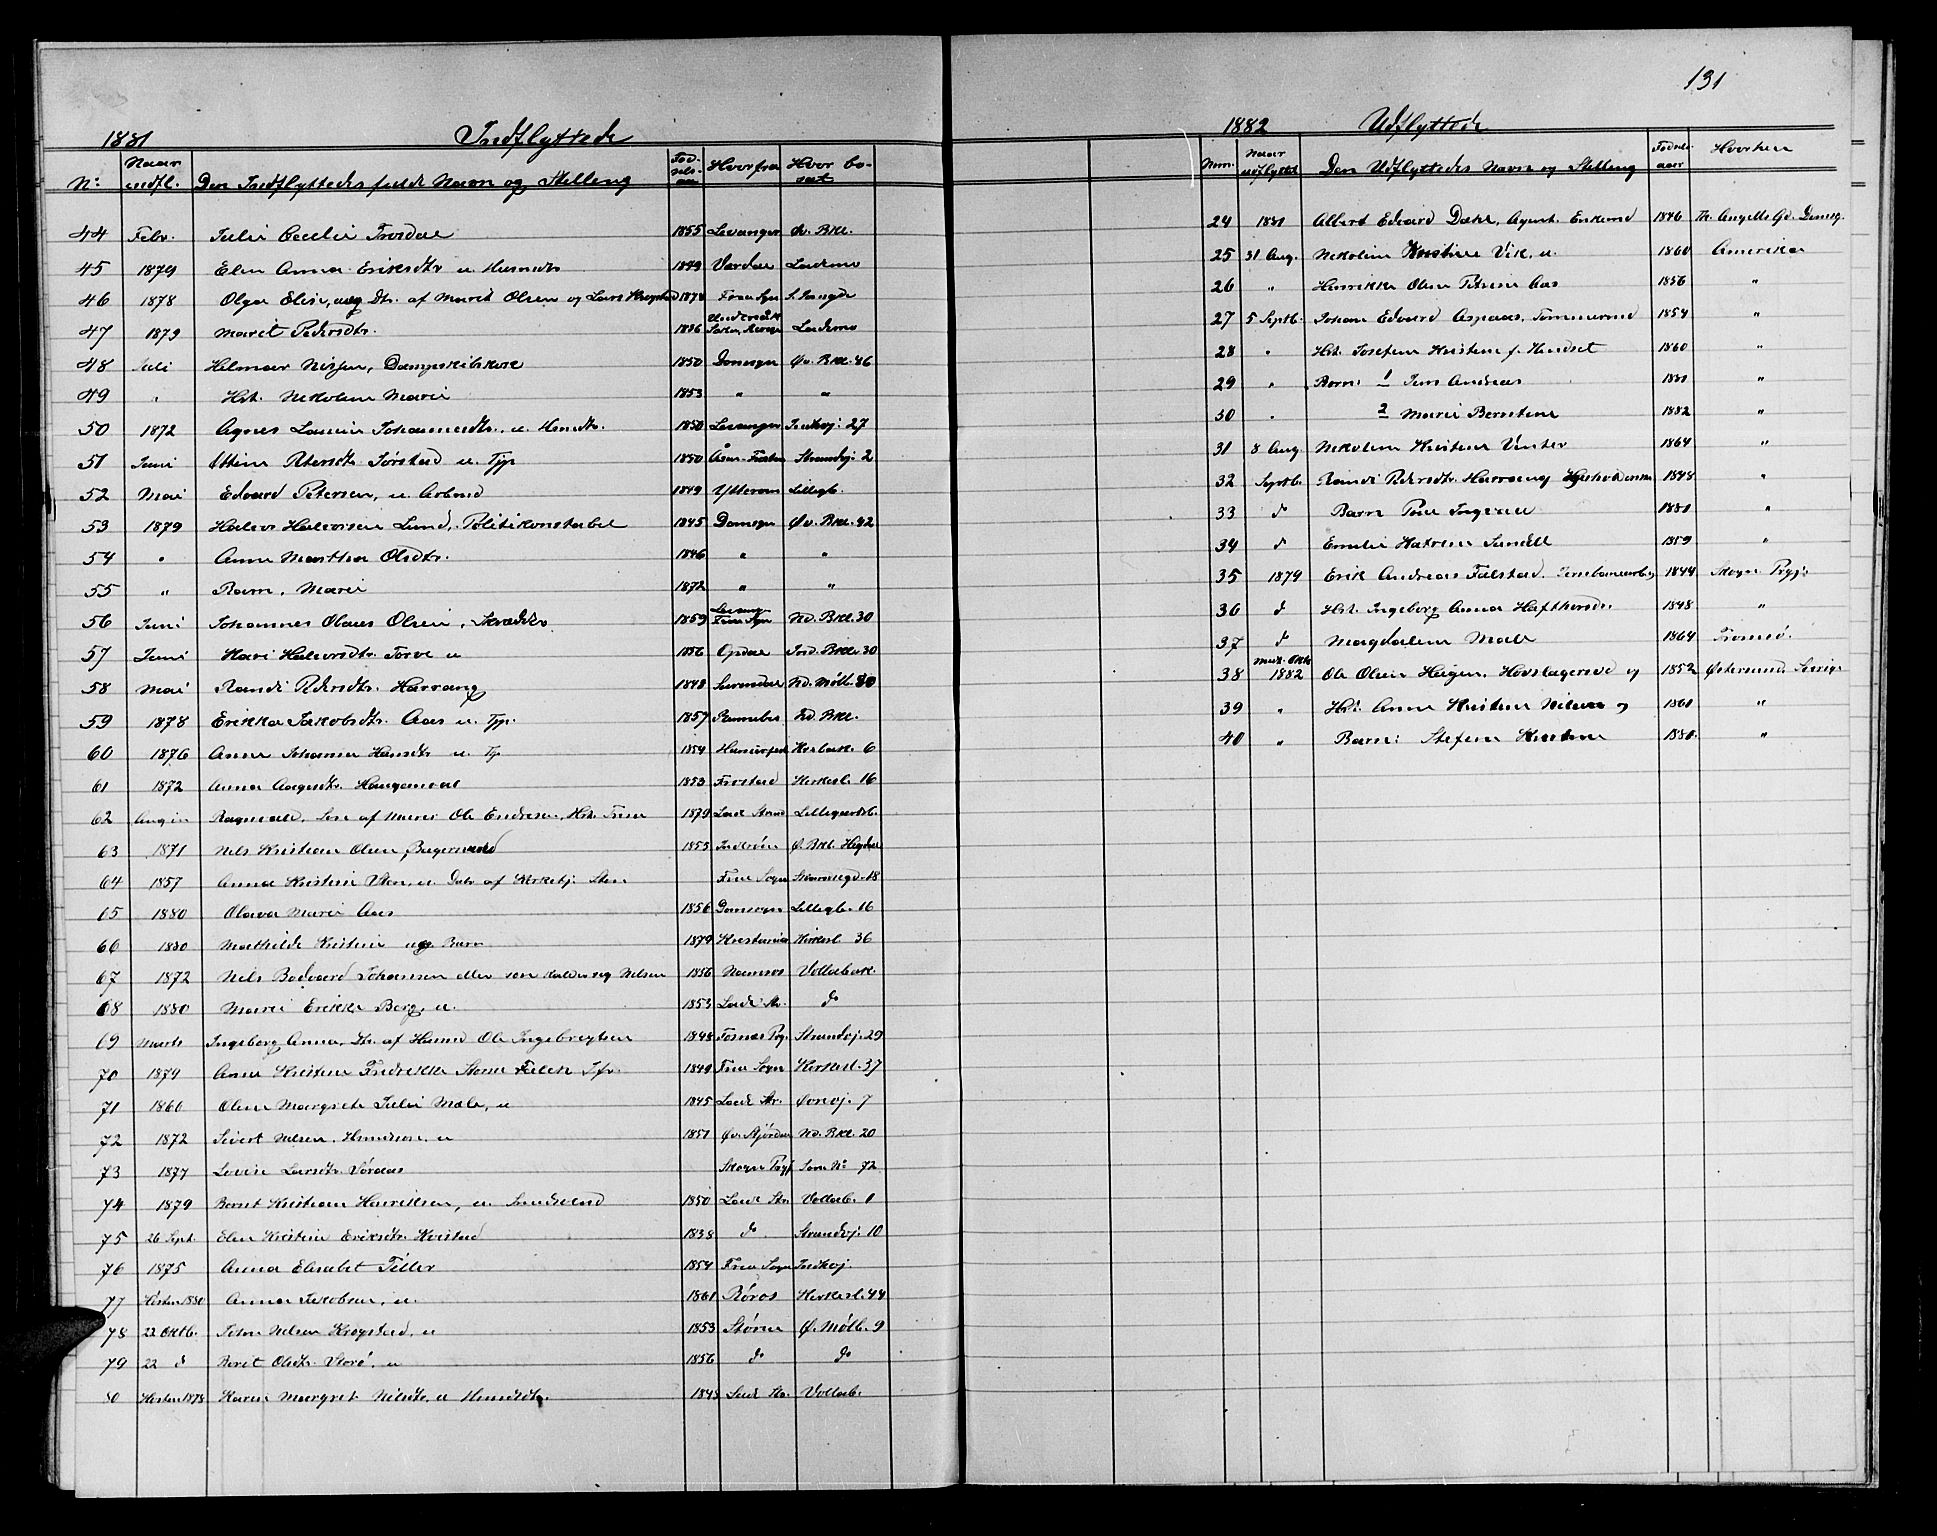 131
1881 Indflyttede
No. Naar indfl. Den Indflyttedes fulde Navn og Stilling Fødselsaar Hvorfra Hvor bosat
44 Febr. Julie Cecilie Frosdal 1855 Levanger Øv. Bkl.
45 1879 Elen Anna Eriksdtr u. Husmdtr 1849 Værdal Lademo
46 1878 Olga Elise, uæg Dtr. af Marit Olsen og Lars Krogstad 1878 Frue Sgn
47 1879 Marit Pedersdtr. 1836 Lademo
48 Juli Hilmar Nissen, Dampskibskok 1850 Domsogn Øv. Bkl. 46
49 " Hst. Nikoline Marie 1853 " "
50 1872 Agnes Laurine Johannesdtr., u. Husmdtr. 1850 Levanger Indhvj. 27
51 Juni Ottine Petersdtr Sørstad u. Tjp 1850 Aasen Frosten Strandvj. 2
52 Mai Edvard Petersen, u. Arbmd 1849 Ytterøen Lillegb.
53 1879 Halvor Halvorsen Lund, Politikonstabel 1845 Domsgn Øv. Bkl. 42
54 " Anne Marthea Olsdtr. 1846 " "
55 " Barn, Marie 1872 " "
56 Juni Johannes Olaus Olsen, Skrædder 1859 Levanger Frue Sgn Nd. Bkl. 30
57 Juni Kari Halvorsdtr. Torve u 1856 Opdal Ind. Bkl. 30
58 Mai Randi Pedersdtr. Harrang 1848 Surendal Nd. Møllb. 80
59 1878 Erikka Jakobsdtr. Aas u. Tjp. 1857 Ranneber Nd. Bkl.
60 1876 Anne Johanna Hansdtr u. Tjp 1854 Kirbak. 6
61 1872 Anna Aagesdtr. Haugamoal 1853 Frostad Kirkesl. 16
62 Ragnvald, Søn af Murer Ole Endresen, Hst. Trine 1879 Lade Strand Lillegaardsb.
63 1871 Nils Kristian Olsen, Bagersvend 1855 Inderøen Ø. Bkl.
64 1857 Anna Kristine Sten, u. Datr af Kirketj. Sten Frue Sogn 18
65 1880 Olava Marie Aas 1856 Domsogn Lillegb. 16
66 1880 Mathilde Kristine uæg Barn 1879 Kristiania Kirkesl. 36
67 1872 Nils Bodvard Johansen eller som kalder sig Nilsen 1856 Namsos Vollabak.
68 1880 Marie Erikke Berg, u. 1853 Lade Str. do
69 Marts Ingeborg Anna, Dtr. af Husmd Ole Ingebregtsen 1848 Fosnæs Pg. Strandvj. 29
70 1879 Anne Kristine Fredrikke Storm Falck Jfr. 1849 Frue Sogn Kirkesl. 37
71 1866 Oline Margrete Julie Male, u 1845 Lade Str. Ørevj. 7
72 1872 Sivert Nilsen, Husmdsøn, u 1851 Øv. Stjørdal Nd. Bkl. 20
73 1877 Lovise Larsdtr Vordas Skogn Prgj Som No 72
74 1879 Bernt Kristian Henriksen, u. Smedsvend 1850 Lade Str. Vollab. 1
75 26 Sept. Elen Kristine Eriksdtr. Kvistad 1838 do. Strandvj. 10
76 1875 Anna Elisabet Tiller 1854 Frue Sogn Indhvj.
77 Høsten 1880 Anna Jakobsen, u. 1861 Røros Kirkesl. 44
78 22 Oktb. John Nilsen Krogstad, u 1853 Støren Ø. Møllb. 9
79 22 d Berit Olsdtr. Storø, u 1856 do do
80 Høsten 1878 Karen Margret Nilsdtr, u Husmdsdtr. 1848 Lade Str. Vollab.
1882 Udflyttede
Num. Naar udflyttet Den Udflyttedes Navn og Stilling Fødselsaar Hvorhen
24 1881 Albert Edvard Dahl, Agent. Enkemd 1846 Th. Angells Gd. Domsg.
25 31 Aug. Nikoline Kristine Vik, u. 1860 Amerika
26 " Henrikke Oline Petrine Aas 1856 "
27 5 Septb. Johan Edvard Aspaas, Tømmermd 1854 "
28 " Hst. Josefine Kristine f. Hindset 1860 "
29 " Børn: 1 Jens Andreas 1880 "
30 " 2 Marie Berntine 1882 "
31 8 Aug. Nikoline Kristine Vinter 1864 "
32 Septb. Randi Pedersdtr. Harrang 1848 "
33 d Barn Ingvald 1880 "
34 d Emilie Katrine Sandell 1859 "
35 1879 Erik Andreas Falstad, Jernbanearbd 1844 Skogn Prgj.
36 d Hst. Ingeborg Anna Hafthorsdtr 1848 "
37 d Magdalene Male 1864 Tromsø.
38 Midt. Oktb 1882 Ole Olsen Haugen, Hovslagersvd og 1852 Østersund, Sverige
39 " Hst. Anne Kristine Nilsen og 1861 "
40 " Barn: Stefine Kristine 1880. "